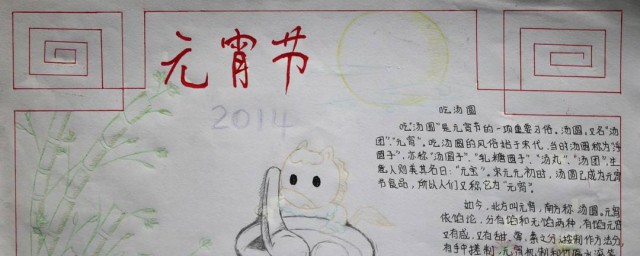 元宵节
2014
吃汤圆
吃"汤圆"是元宵节的一项重要习俗。汤圆,又名"汤
团"、"元宵"。吃汤圆的风俗始于宋代,当时汤圆称为浮
圆子",亦称"汤圆子"、"乳糖圆子"、"汤丸"、"汤团",生
意人则美其名曰:"元宝"。宋元元初时,汤圆已成为元宵
节食品,所以人们又称它为"元宵"。
如今,北方叫元宵,南方称汤圆。元宵
依馅论,分有馅和无馅两种,有馅元宵
又有咸,又有甜、荤、素之分;按制作方法分
有手中搓制、元宵机制和